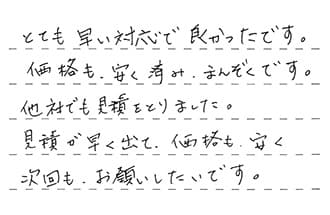 とても早い対応で良かったです。
価格も、安く済み、まんぞくです。
他社でも見積をとりました。
見積が早く出て、価格も、安く
次回も、お願いしたいです。